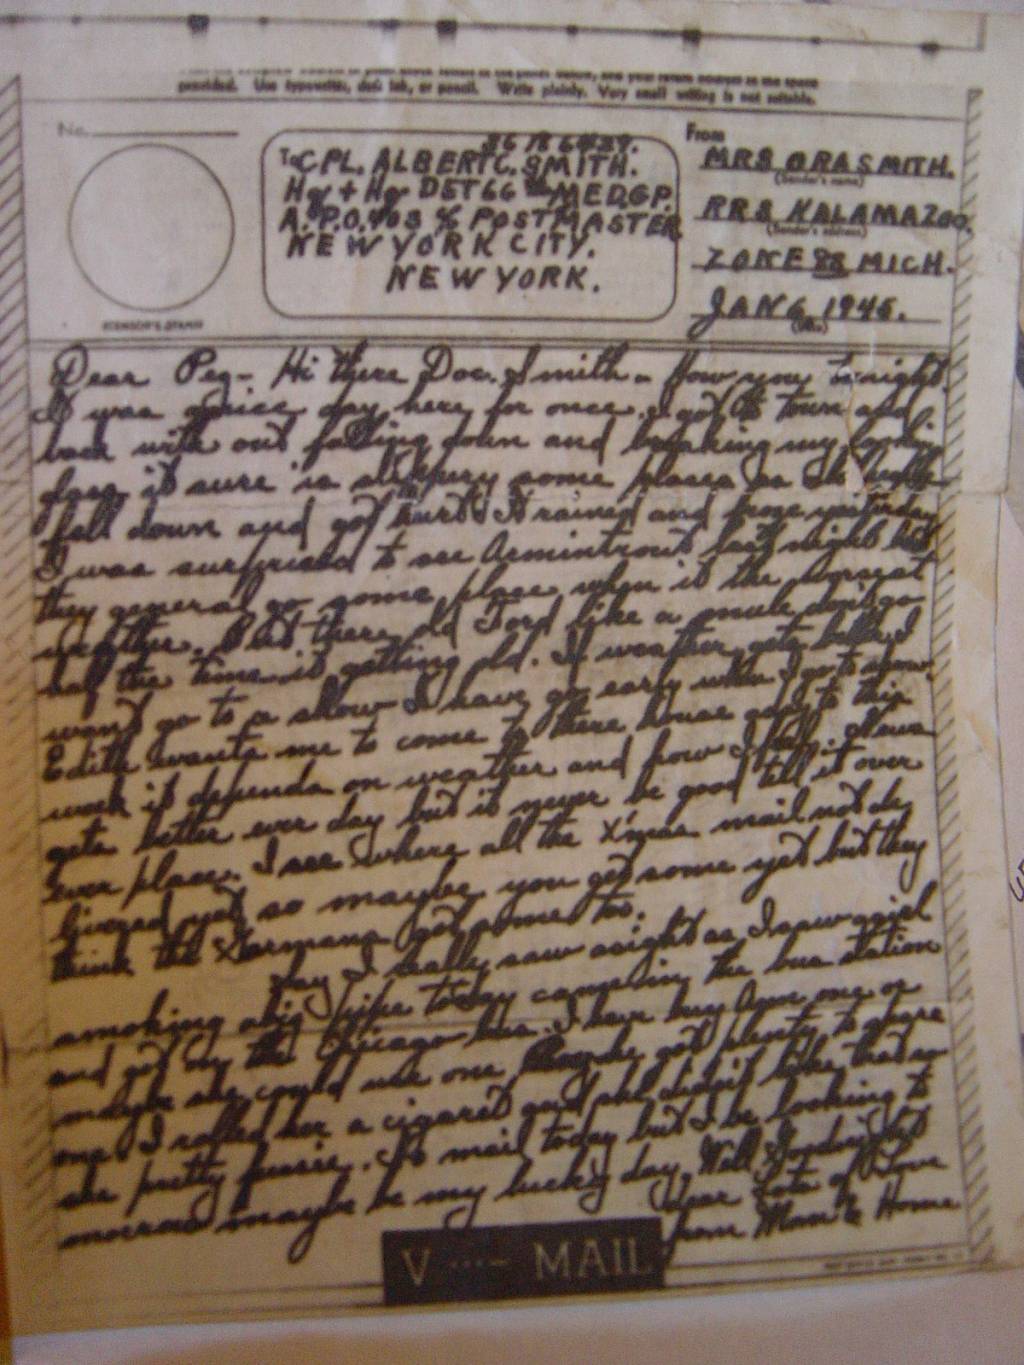 provided. Use typewriter, dark ink, or pencil. Write plainly. Very small writing is not suitable.
No.
To CPL. ALBERT C. SMITH.
Hq + Hq DET 66 MED. GP.
A.P.O. 403 % POSTMASTER
NEW YORK CITY.
NEW YORK.
CENSOR'S STAMP
From
MRS ORA SMITH.
(Sender's name)
RR8 KALAMAZOO,
(Sender's address)
ZONE 88 MICH.
JAN 6, 1945.
Dear Peg - Hi there Doc. Smith. How you tonight.
It was a nice day here for once. I got to town and
back with out falling down and breaking my
it sure is slippery some places as
fall down and got hurt. It rained and froze yesterday
I was surprised to see Armintrout last night but
they general go some place when it the
weather. But there old Ford like a mule don't go
half the time it getting old. If weather gets better I
want go to a show I have go early when I go to show
Edith wants me to come to there house to this
week it depends on weather and how I feel. News
gets better ever day but it never be good till it over
ever place. I see where all the X'mas mail not de
livered yet so maybe you get some yet but they
think the Germans got some too.
Say I really saw a sight as I saw a girl
smoking a big pipe today came in the bus station
and got on the Chicago bus. I have buy one or
maybe she could use one got plenty to spare
one I rolled her a cigaret and she didn't like that so
she pretty fussie. No mail today but I be looking to
morrow maybe be my lucky day. Well Goodnight
dear Lots of Love
from Mom & Home
V ...- MAIL